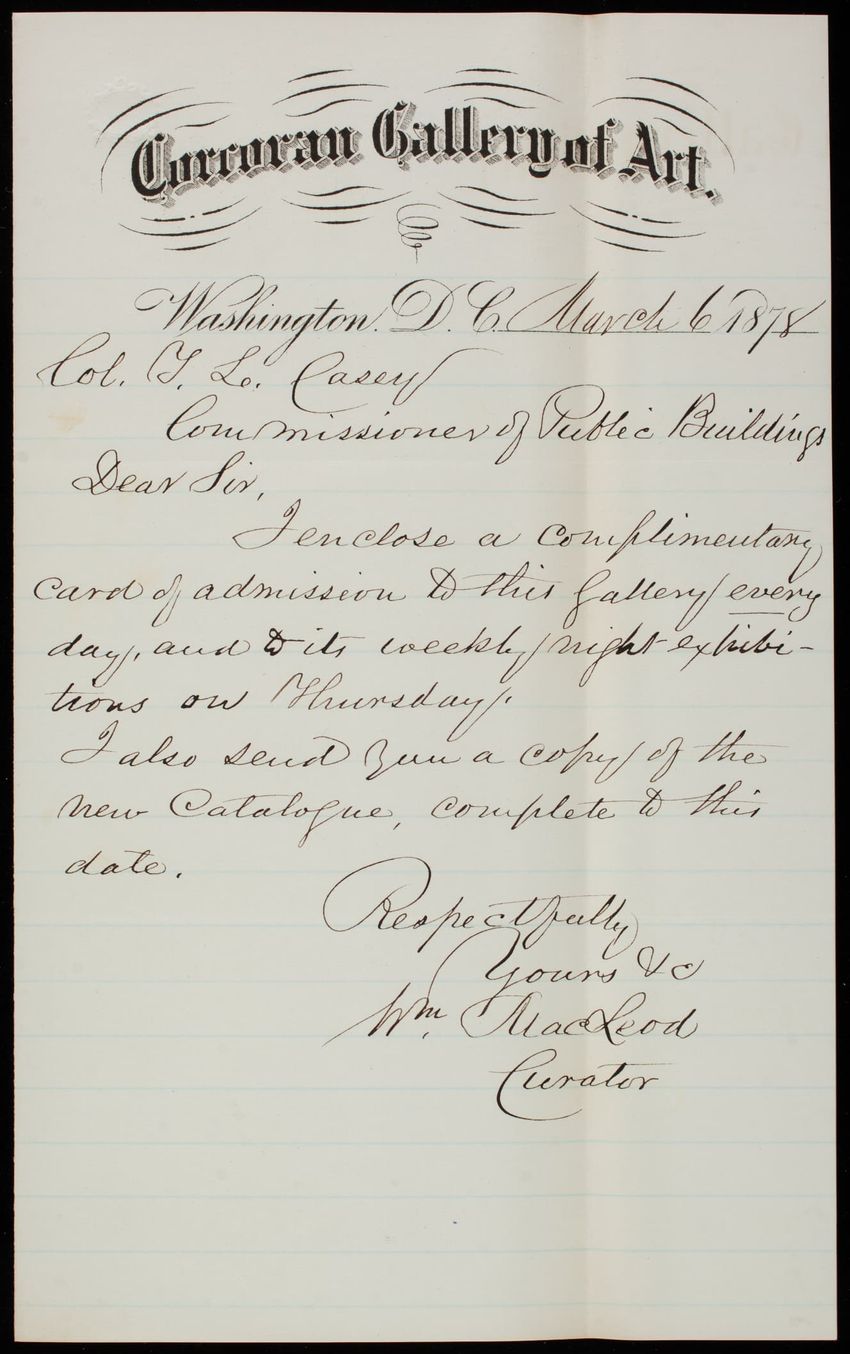 Corcoran Gallery of Art.
Washington. D. C. March 6 1878
Col. T. L. Casey
Commissioner of Public Buildings
Dear Sir,
I enclose a complimentary
card of admission to this Gallery every
day, and to its weekly night exhibi-
tions on Thursday.
I also send you a copy of the
new Catalogue, complete to this
date.
Respectfully
Yours &c
Wm. MacLeod
Curator